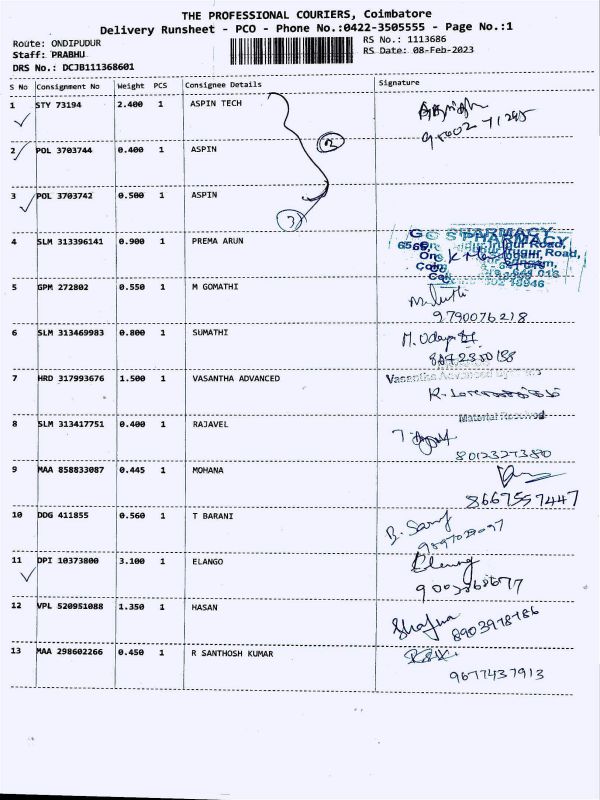 THE PROFESSIONAL COURIERS, Coimbatore
Delivery Runsheet - PCO - Phone No.:0422-3505555 - Page No.:1
Route: ONDIPUDUR RS No.: 1113686
Staff: PRABHU RS Date: 08-Feb-2023
DRS No.: DCJB111368601
S No Consignment No Weight PCS Consignee Details Signature
1 STY 73194 2.400 1 ASPIN TECH
2 POL 3703744 0.400 1 ASPIN 2
3 POL 3703742 0.500 1 ASPIN
3
4 SLM 313396141 0.900 1 PREMA ARUN PHARMACY
5 GPM 272802 0.550 1 M GOMATHI
9790076218
6 SLM 313469983 0.800 1 SUMATHI
7 HRD 317993676 1.500 1 VASANTHA ADVANCED
Material Received
8 SLM 313417751 0.400 1 RAJAVEL
8012327380
9 MAA 858833087 0.445 1 MOHANA
8667557447
10 DDG 411855 0.560 1 T BARANI
11 DPI 10373800 3.100 1 ELANGO Elang
12 VPL 520951088 1.350 1 HASAN
13 MAA 298602266 0.450 1 R SANTHOSH KUMAR
9677437913